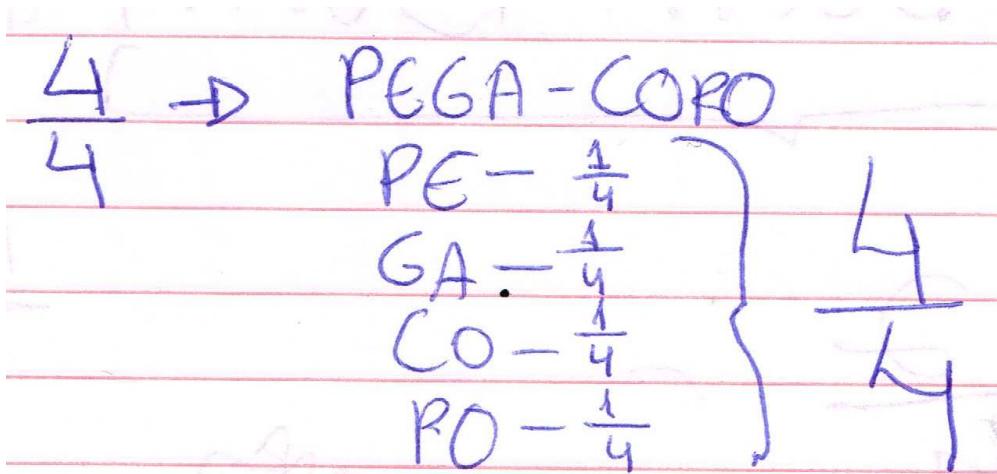 4/4 → PEGA-CORO
PE - 1/4
GA - 1/4
CO - 1/4
RO - 1/4
} 4/4